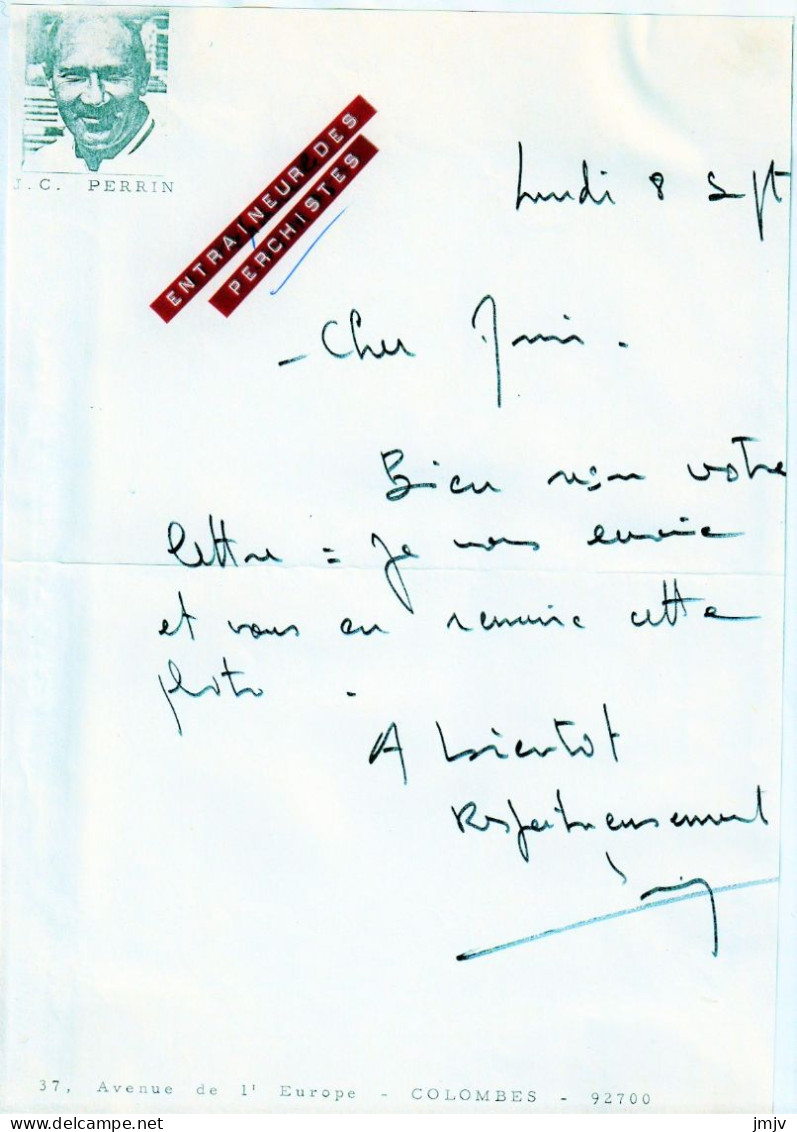 J. C. PERRIN
ENTRAINEUR DES
PERCHISTES
Lundi 8 Sept
- Cher
Bien reçu votre
lettre = Je vous envoie
et vous en remercie cette
photo .
A bientot
Respectueusement
37, Avenue de l' Europe - COLOMBES - 92700
jmjv